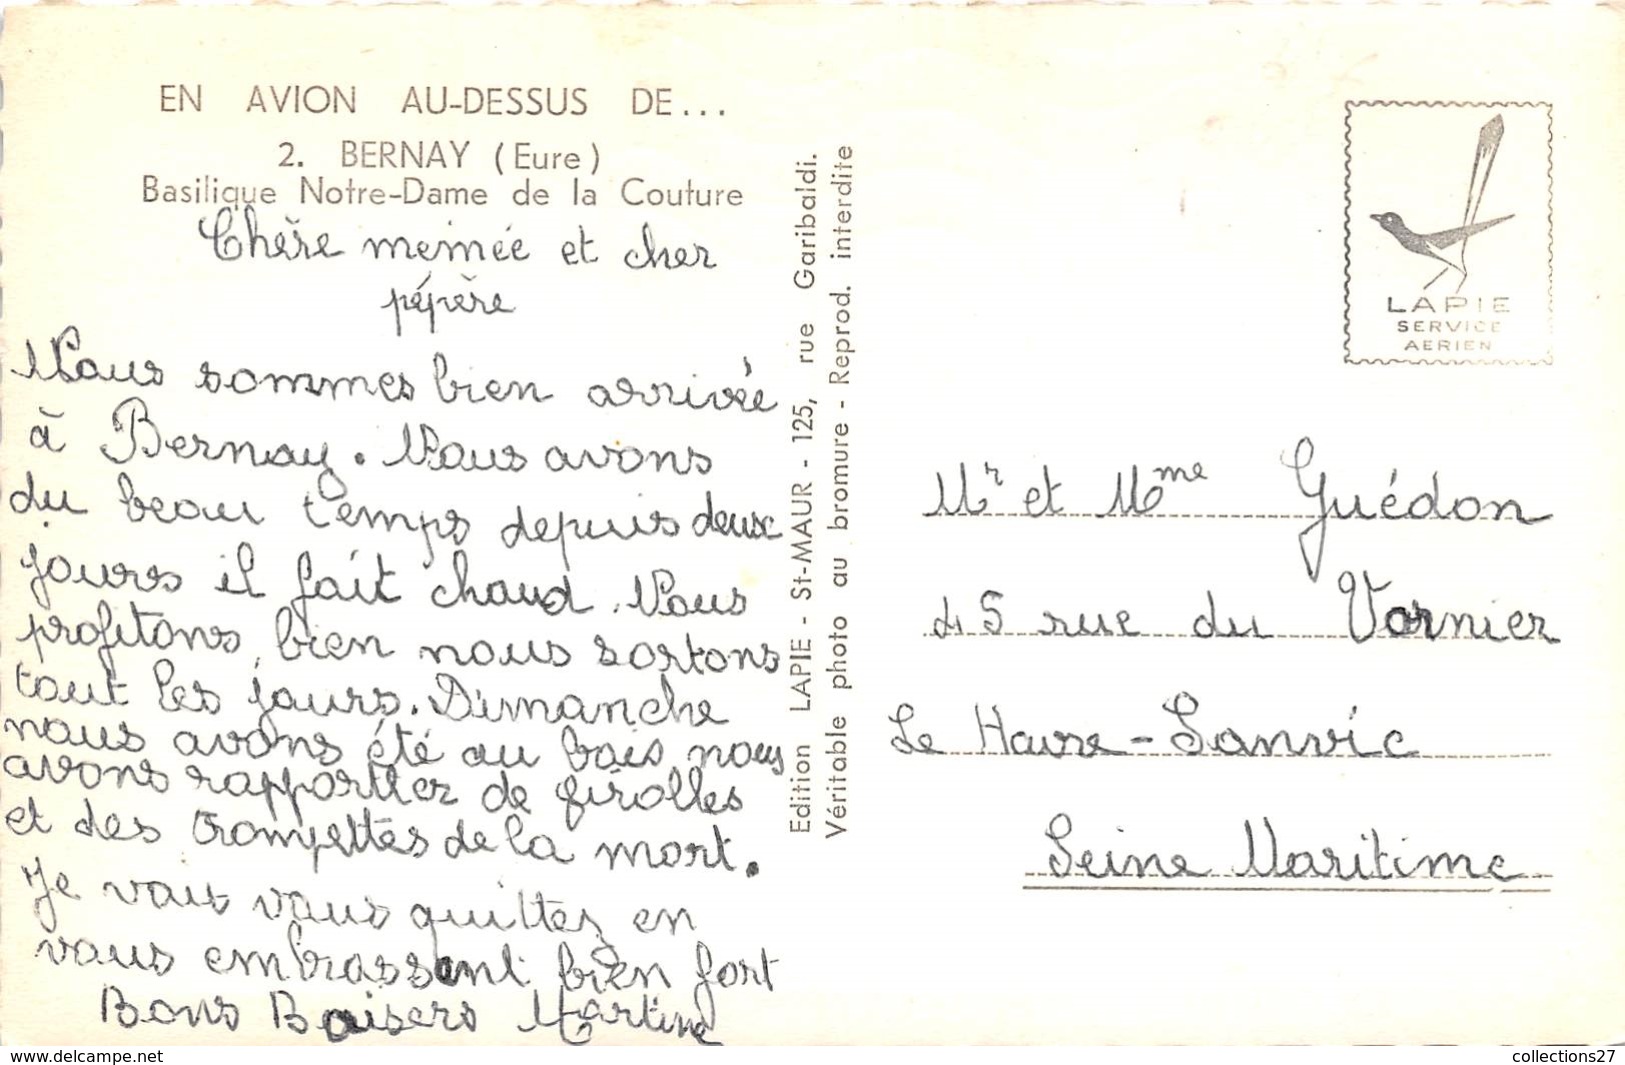 EN AVION AU-DESSUS DE...
2. BERNAY (Eure)
Basilique Notre-Dame de la Couture
Chère memée et cher
pépère
Nous sommes bien arrivée
à Bernay. Nous avons
du beau temps depuis deux
jours il fait chaud. Nous
profitons bien nous sortons
tout les jours. Dimanche
nous avons été au bois nous
avons rapportter de girolles
et des trompettes de la mort.
Je vais vous quitter en
vous embrassant bien fort
Bons Baisers Martine
Edition LAPIE - St-MAUR - 125, rue Garibaldi.
Véritable photo au bromure - Reprod. interdite
LAPIE
SERVICE
AERIEN
Mr et Mme Guédon
45 rue du Vornier
Le Havre-Sanvic
Seine Maritime
www.delcampe.net
collections27